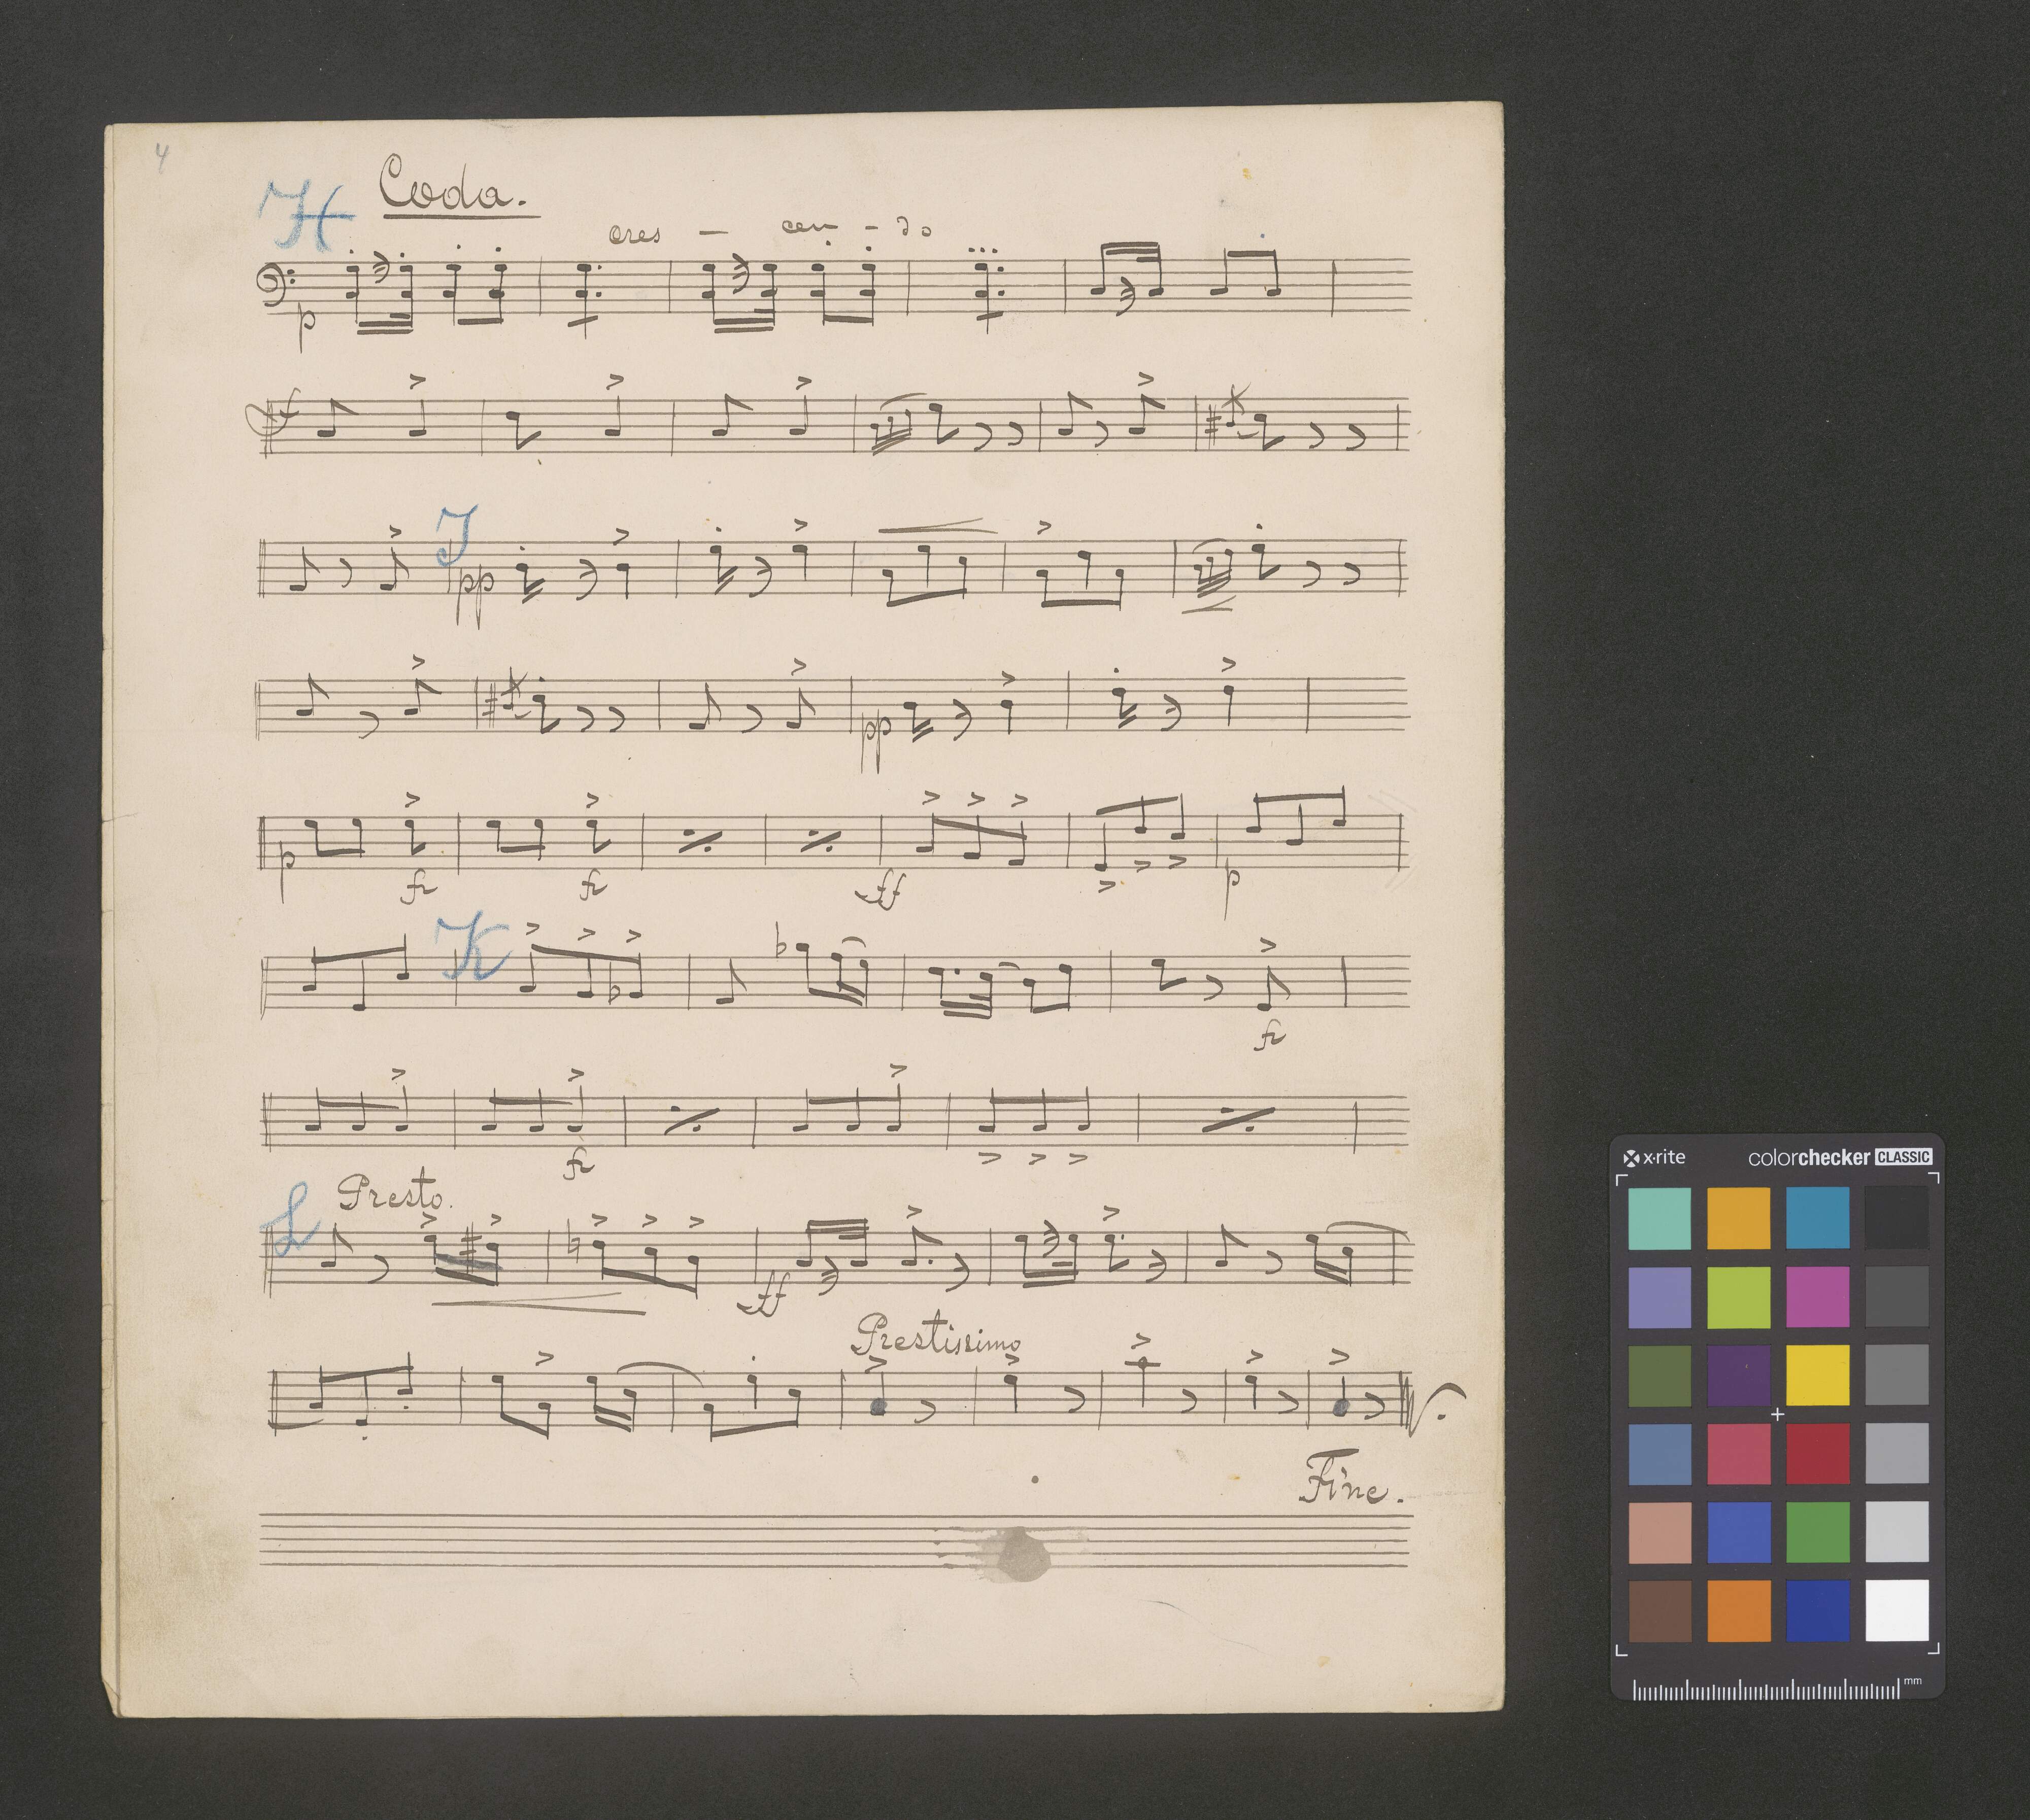 4
H Coda.
cres - cen - do
p
f
I
pp
pp
p fz fz ff p
K
fz
fz
L Presto.
ff
Prestissimo
Fine.
x·rite colorchecker CLASSIC
mm